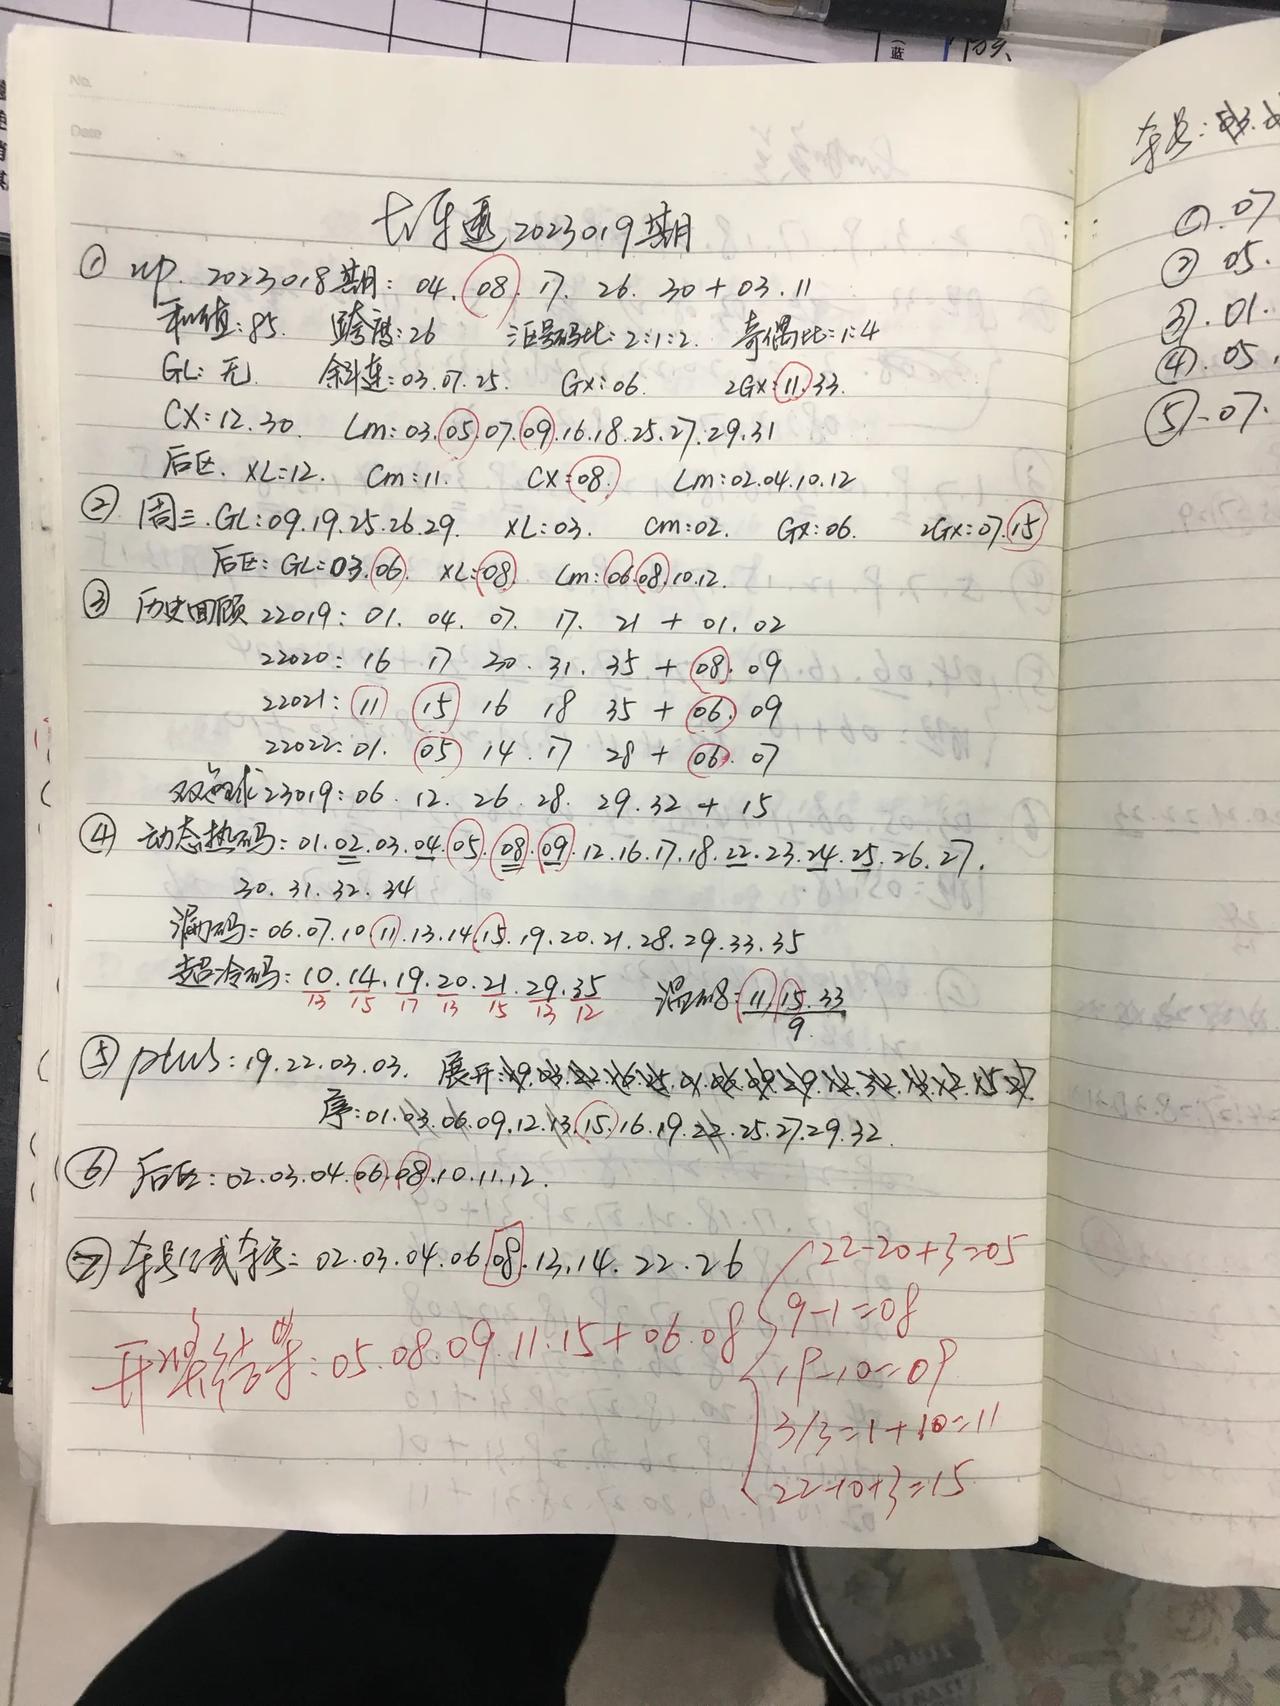 No.
Date
大乐透2023019期
① up. 2023018期: 04. 08. 17. 26. 30 + 03. 11
和值: 85. 跨度: 26 三区号码比: 2:1:2. 奇偶比: 1:4
GL: 无. 余斜连: 03. 07. 25. GX: 06. 2GX: 11. 33.
CX: 12. 30. Lm: 03. 05. 07. 09. 16. 18. 25. 27. 29. 31
后区. XL: 12. Cm: 11. CX: 08. Lm: 02. 04. 10. 12
② 周三. GL: 09. 19. 25. 26. 29. XL: 03. Cm: 02. GX: 06. 2GX: 07. 15
后区: GL: 03. 06. XL: 08 Lm: 06. 08. 10. 12.
③ 历史回顾 22019: 01. 04. 07. 17. 21 + 01. 02
22020: 16 17 30. 31. 35 + 08. 09
22021: 11 15 16 18 35 + 06. 09
22022: 01. 05 14. 17 28 + 06. 07
双色球23019: 06. 12. 26. 28. 29. 32 + 15
④ 动态热码: 01. 02. 03. 04. 05. 08. 09. 12. 16. 17. 18. 22. 23. 24. 25. 26. 27.
30. 31. 32. 34
漏码: 06. 07. 10. 11. 13. 14. 15. 19. 20. 21. 28. 29. 33. 35
超冷码: 10. 14. 19. 20. 21. 29. 35 温码8: 11. 15. 33
13 15 17 13 15 13 12 9
⑤ plus: 19. 22. 03. 03. 展开: 19. 03. 22. 16. 25. 01. 06. 09. 29. 12. 32. 13. 12. 15. 27.
序: 01. 03. 06. 09. 12. 13. 15. 16. 19. 22. 25. 27. 29. 32.
⑥ 后区: 02. 03. 04. 06. 08. 10. 11. 12.
⑦ 02. 03. 04. 06. 08. 13. 14. 22. 26
开奖结果: 05. 08. 09. 11. 15 + 06. 08
22-20+3=05
9-1=08
19-10=09
3/3=1+10=11
22-10+3=15
① 07
② 05.
③. 01.
④. 05.
⑤ 07.